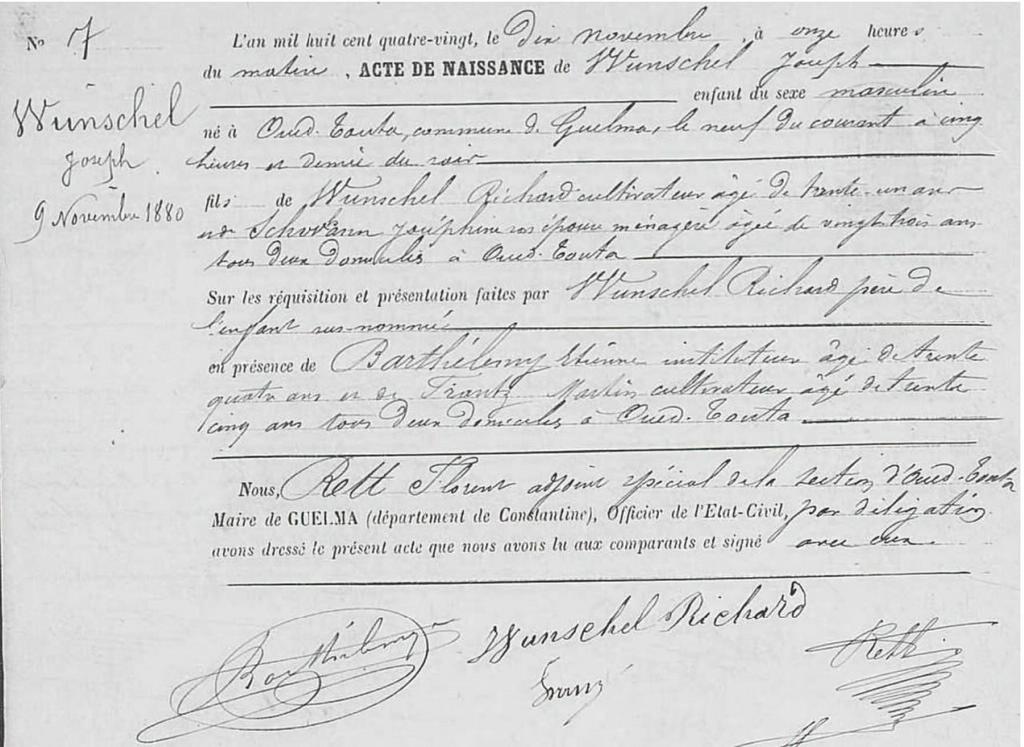 N° 7
Wunschel
Joseph
9 Novembre 1880
L'an mil huit cent quatre-vingt, le dix novembre, à onze heures
du matin, ACTE DE NAISSANCE de Wunschel Joseph
enfant du sexe masculin
né à Oued-Touta, commune de Guelma, le neuf du courant à cinq
heures et demie du soir
fils de Wunschel Richard cultivateur âgé de trente-un ans
et de Joséphine son épouse ménagère âgée de vingt trois ans
tous deux domiciliés à Oued-Touta
Sur les réquisition et présentation faites par Wunschel Richard père de
l'enfant sus-nommé
en présence de Barthélemy Etienne instituteur âgé de trente
quatre ans et de Frantz Martin cultivateur âgé de trente
cinq ans tous deux domiciliés à Oued-Touta
Nous, Rett Florent adjoint spécial de la section d'Oued-Touta
Maire de GUELMA (département de Constantine), Officier de l'Etat-Civil, par délégation
avons dressé le présent acte que nous avons lu aux comparants et signé avec eux.
Barthélemy
Wunschel Richard
Rett